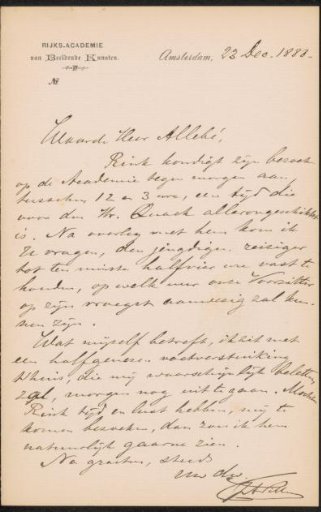 RIJKS-ACADEMIE
van Beeldende Kunsten.
No
Amsterdam, 22 Dec. 1888.
Waarde Heer Allebé,
Rink kondigt zijn bezoek
op de Academie tegen morgen aan,
tusschen 12 en 3 ure, een tijd die
voor den Hr. Quack allerongeschiktst
is. Na overleg met hem kom ik
U vragen, den jeugdigen reiziger
tot ten minste halfvier ure vast te
houden, op welk uur onze Voorzitter
op zijn vroegst aanwezig zal kun-
nen zijn.
Wat mijzelf betreft, ik zit met
een halfgenezen voetverstuiking
thuis, die mij waarschijnlijk beletten
zal, morgen nog uit te gaan. Mocht
Rink tijd en lust hebben, mij te
komen bezoeken, dan zou ik hem
natuurlijk gaarne zien.
Na groeten, steeds
Uw dw